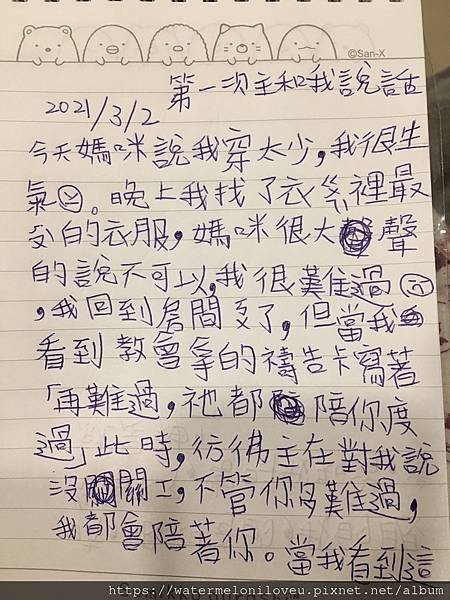 ©San-X
第一次主和我說話
2021/3/2
今天媽咪說我穿太少,我很生
氣☹。晚上我找了衣 裡最
的衣服,媽咪很大 聲
的說不可以,我很難過☹
,我回到房間 了,但當我
看到教會拿的禱告卡寫著
「再難過,祂都 陪你度
過」此時,彷彿主在對我說
沒 關 ,不管你多難過,
我都會陪著你。當我看到這
https://watermeloniloveu.pixnet.net/album